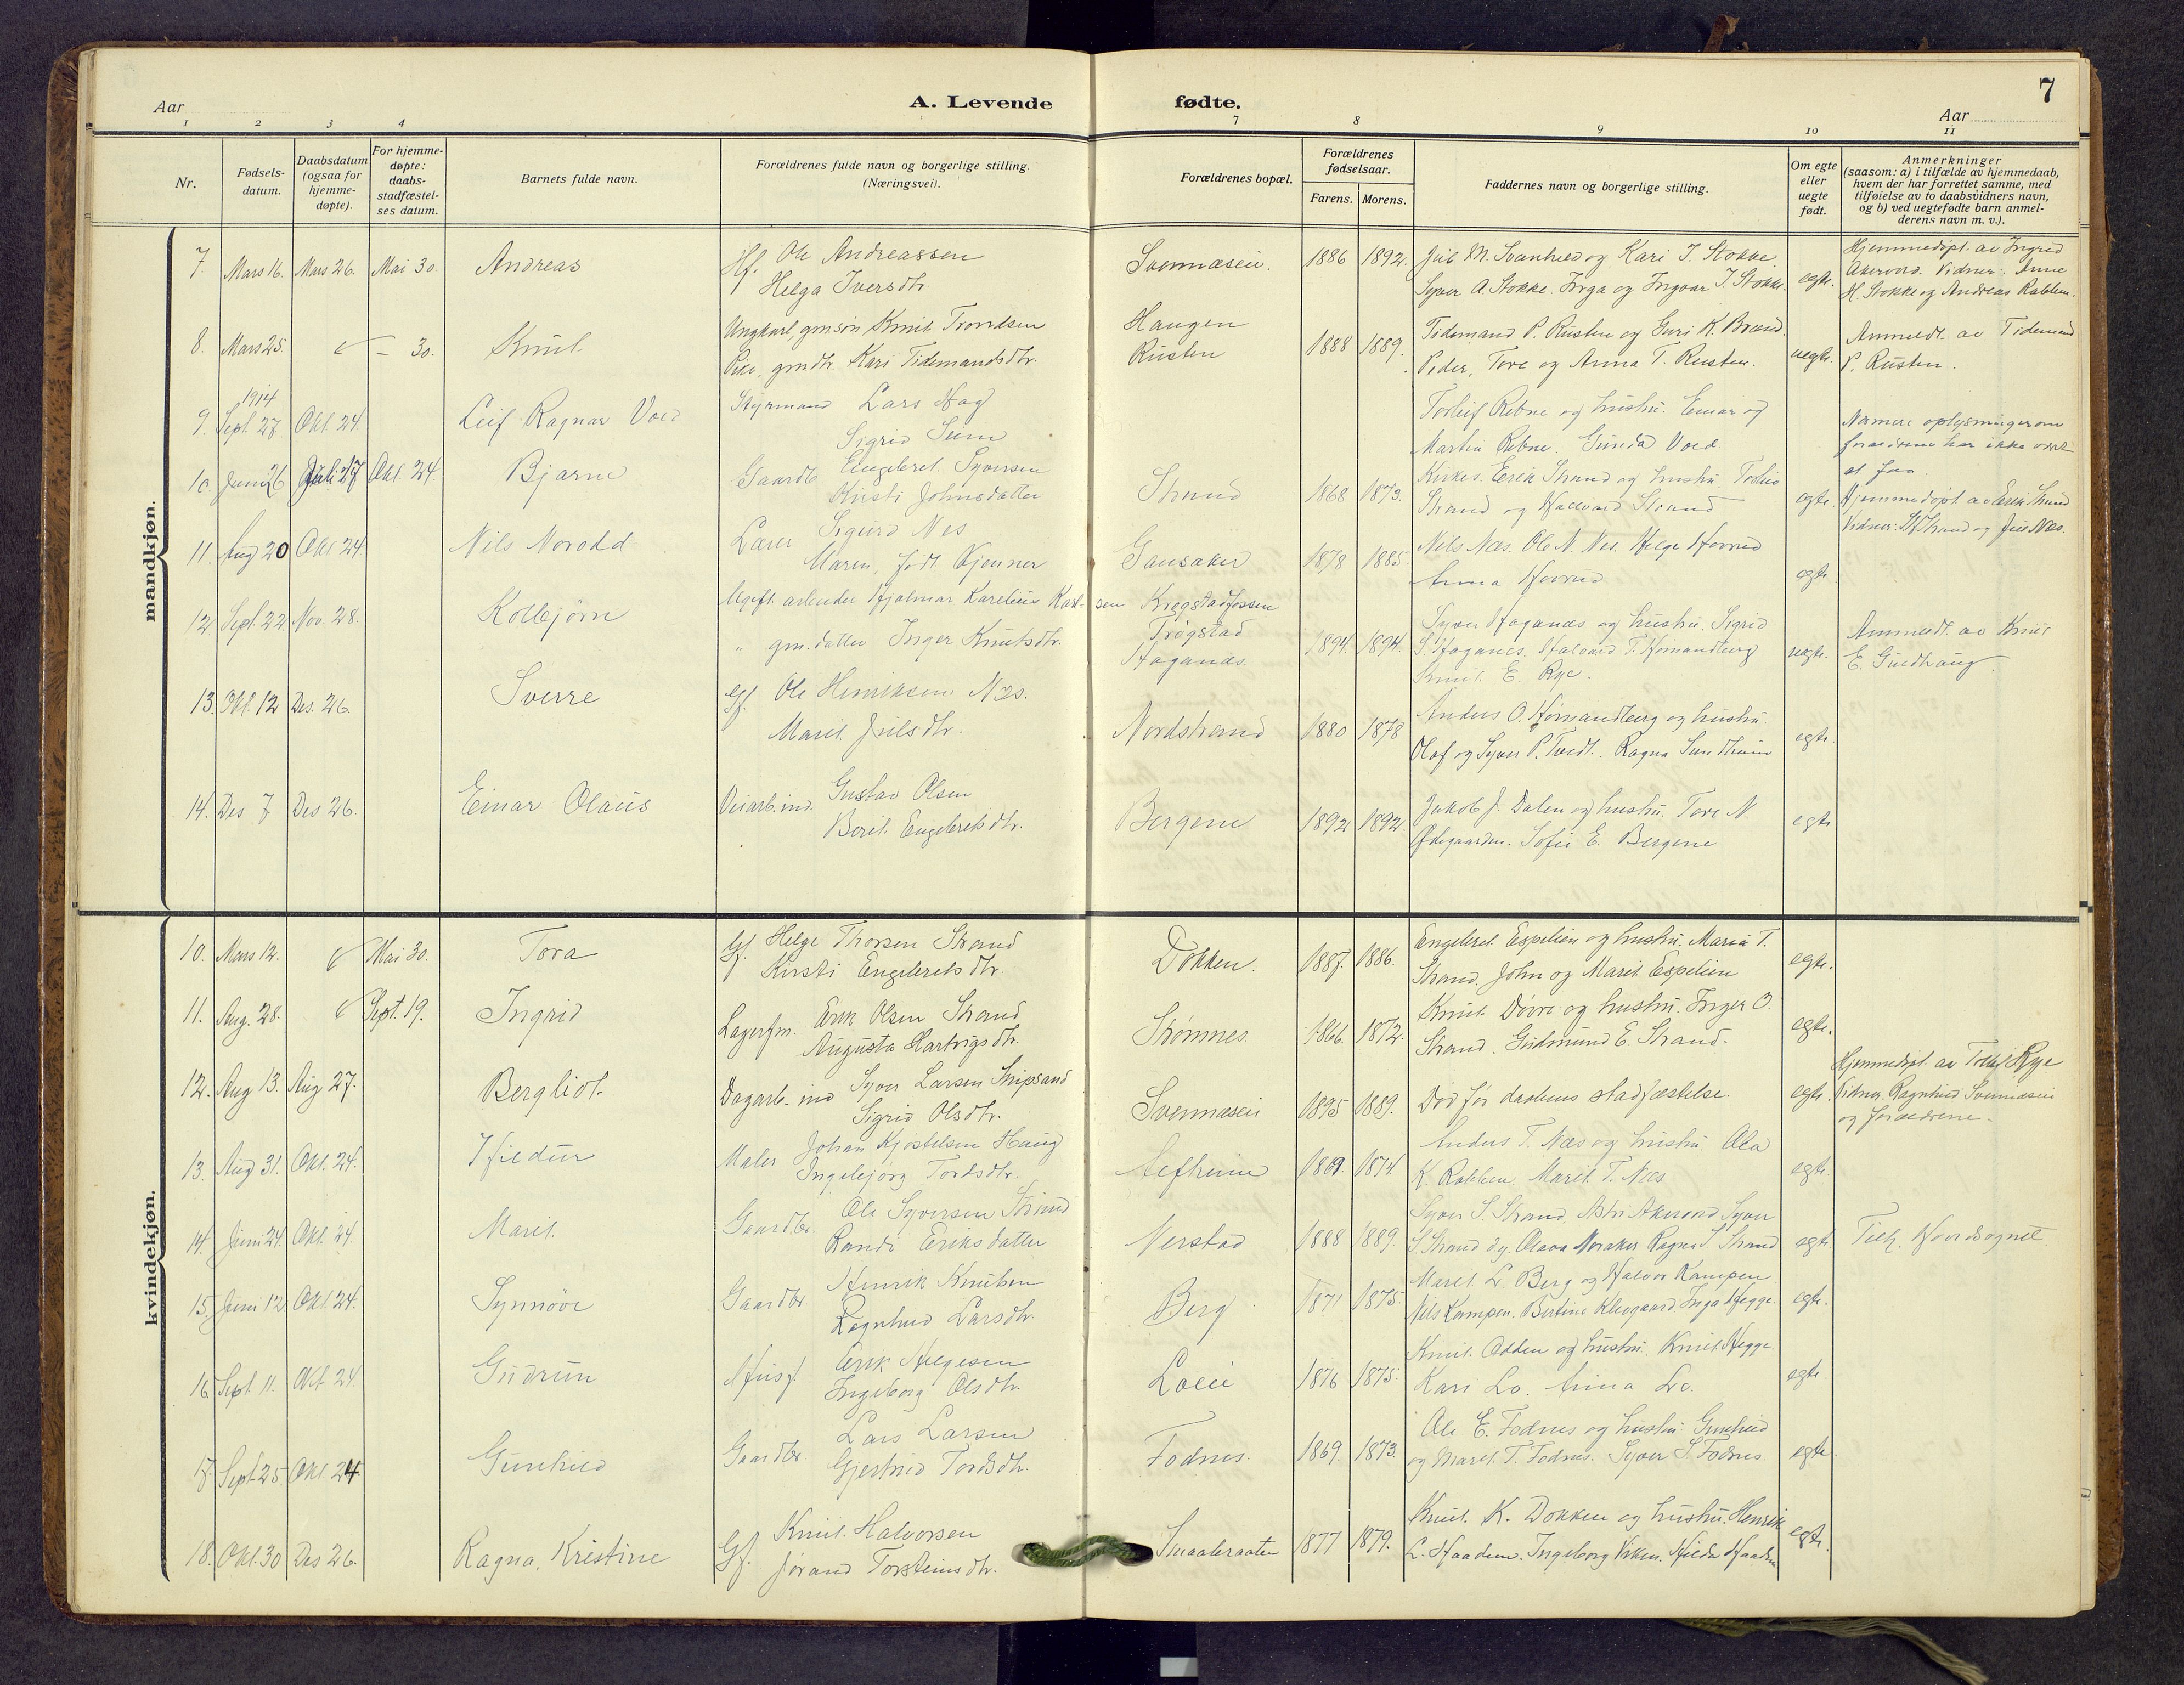 Aar
A. Levende fødte.
7
Aar
1 2 3 4 7 8 9 10 11
Nr.
Fødsels-
datum.
Daabsdatum
(ogsaa for
hjemme-
døpte).
For hjemme-
døpte:
daabs-
stadfæstel-
ses datum.
Barnets fulde navn.
Forældrenes fulde navn og borgerlige stilling.
(Næringsvei).
Forældrenes bopæl.
Forældrenes
fødselsaar.
Farens. Morens.
Faddernes navn og borgerlige stilling.
Om egte
eller
uegte
født.
Anmerkninger
(saasom: a) i tilfælde av hjemmedaab,
hvem der har forrettet samme, med
tilføielse av to daabsvidners navn,
og b) ved uegtefødte barn anmel-
derens navn m. v.).
mandkjøn.
7. Mars 16. Mars 26. Mai 30. Andreas
Hf. Ole Andreassen
Helga Iversdtr.
1886 1892.
og Kari I. Stokke
Syver A. Stokke. Inga og Ingvar I. Stokke.
egte.
Hjemmedøpt av Ingrid
Vidner: Anne
H. Stokke og Andreas Rabben.
8. Mars 25. – 30. Knut.
Ungkarl, gmsøn Knut Trondsen
Pike, gmdtr. Kari Tidemandsdtr.
Haugen
Rusten
1888 1889.
Tidemand P. Rusten og Guri K. Brænd.
Peder, Tore og Anna T. Rusten.
uegte.
Anmeldt av Tidemand
P. Rusten.
1914
9. Sept. 27 Okt. 24. Leif Ragnar Vold
Styrmand Lars Hag
Sigrid
Torleif Rebne og hustru. Einar og
Martin Rebne. Gunda Vold
Nærmere oplysninger om
forældrene har ikke vært
at faa.
10. Juni 26 Juli 27 Okt. 24. Bjarne
Gaardb. Engebret Syversen
Kristi Johnsdatter
Strand
1868 1873.
Kirkes. Erik Strand og hustru. Torleiv
Strand og Halvard Strand
egte.
Hjemmedøpt av Erik Strand
11. Aug 20 Okt 24. Nils Norodd
Lærer Sigurd Nes
Maren, født Kjenner
Gausaker
1878 1885.
Nils Næs. Ole N. Nes. Helge
Anna
egte
12. Sept. 22 Nov. 28. Kolbjørn
Ugift arbeider Hjalmar Karelius Karl-sen Krogstadfossen
" gm.datter Inger Knutsdtr.
Trøgstad
Haganes.
1894. 1894.
Syver Haganes og hustru. Sigrid
S. Haganes. Halvard T.
Knut E. Rye.
uegte.
Anmeldt av Knut
E. Guldhaug.
13. Okt. 12 Des. 26. Sverre
Gf. Ole Henriksen Næs.
Marit Juilsdtr.
Nordstrand
1880 1878
Anders O. og hustru.
Olaf og Syver P. Tvedt. Ragna Sundheim
egte.
14. Des 7 Des 26. Einar Olaus
Veiarb. ind. Gustav Olsen
Berit Engebretsdtr.
Bergene
1892 1892.
Jakob J. Dalen og hustru. Tore N.
Ødegaarden. Sofie E. Bergene
egte
kvindekjøn.
10. Mars 12. Mai 30. Tora
Gf. Helge Thorsen Strand
Kirsti Engebretsdtr.
Dokken.
1887. 1886.
Engebret Espelien og hustru. Maria T.
Strand. John og Marit Espelien
egte.
11. Aug. 28. Sept. 19. Ingrid
Lagerfm. Erik Olsen Strand
Augusta Hartvigsdtr.
Strømnes.
1866. 1872.
Knut Døvre og hustru. Inger O.
Strand. Gudmund E. Strand.
egte.
12. Aug 13. Aug 27. Bergliot
Dagarb. ind Syver Larsen Snipsand
Sigrid Olsdtr.
1895 1889.
Død før daabens stadfæstelse.
egte.
Hjemmedøpt av Rye
Vidner. Ragnhild
og forældrene.
13. Aug 31. Okt. 24. Hildur
Maler Johan Kjostelsen Haug
Ingebjørg Tordsdtr.
1869 1874
Anders T. Næs og hustru. Ola
K Robben. Marit T. Næs
egte.
14. Juni 24. Okt. 24. Marit
Gaardbr. Ole Syversen Strand
Randi Eriksdatter
Nerstad
1888 1889.
Syver S. Strand, Astri Akervold Syver
S Strand dy. Olava Noraker Ragna S. Strand
egte
15. Juni 12 Okt 24. Synnøve
Gaardbr. Henrik Knutsen
Ragnhild Larsdtr.
Berg
1871 1875.
Marit L. Berg og Halvor Kampen
Nils Kampen. Bertine Klevgaard. Inga Hegge.
egte.
16. Sept. 11. Okt 24. Gudrun
Husf. Erik Helgesen
Ingeborg Olsdtr.
1876 1875.
Knut Odden og hustru. Knut Hegge
Kari Lo. Anna Lo.
egte.
17. Sept. 25. Okt 24 Gunhild
Gaardbr. Lars Larsen
Gjertrud Tordsdtr.
Fodnes.
1869. 1873.
Ole E. Fodnes og hustru. Gunhild
og Marit T. Fodnes. Syver S. Fodnes
egte.
18. Okt. 30 Des 26. Ragna, Kristine
Gf. Knut Halvorsen
Jørand Torsteinsdtr.
1877 1879.
Knut K. Dokken og hustru. Henrik
L. Haadem. Ingeborg Viken. Hilda Haadem
egte.